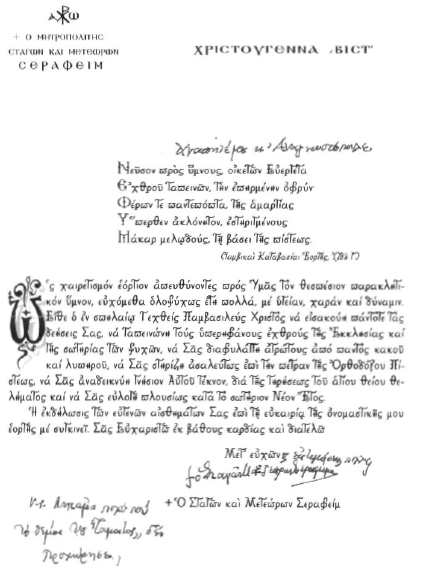 + Ο ΜΗΤΡΟΠΟΛΙΤΗΣ
ΣΤΑΓΩΝ ΚΑΙ ΜΕΤΕΩΡΩΝ
ΣΕΡΑΦΕΙΜ
ΧΡΙΣΤΟΥΓΕΝΝΑ ͵ΒΙΣΤ'
Νεῦσον πρὸς ὕμνους, οἰκετῶν Εὐεργέτα
Ἐχθροῦ ταπεινῶν, τὴν ἐπηρμένην ὀφρύν
Φέρων τε παντεπόπτα, τῆς ἁμαρτίας
Ὕπερθεν ἀκλόνητον, ἐστηριγμένους
Μάκαρ μελῳδούς, τῇ βάσει τῆς πίστεως.
(Ἰαμβικαὶ Καταβασίαι Ἑορτῆς, ᾠδὴ Γ')
Ὡς χαιρετισμόν ἑόρτιον ἀπευθύνοντες πρὸς Ὑμᾶς τὸν θεσπέσιον παρακλητι-
κόν ὕμνον, εὐχόμεθα ὁλοψύχως ἔτη πολλά, μέ ὑγείαν, χαράν καί δύναμιν.
Εἴθε ὁ ἐν σπηλαίῳ τεχθείς Παμβασιλεύς Χριστός νά εἰσακούῃ πάντοτε τάς
δεήσεις Σας, νά ταπεινώνῃ τούς ὑπερηφάνους ἐχθρούς τῆς Ἐκκλησίας καί
τῆς σωτηρίας τῶν ψυχῶν, νά Σᾶς διαφυλάττῃ ἀτρώτους ἀπό παντός κακοῦ
καί λυπηροῦ, νά Σᾶς στηρίζῃ ἀσαλεύτως ἐπί τήν πέτραν τῆς Ὀρθοδόξου Πί-
στεως, νά Σᾶς ἀναδεικνύῃ γνήσιον Αὐτοῦ τέκνον, διά τῆς τηρήσεως τοῦ ἁγίου θείου θε-
λήματος καί νά Σᾶς εὐλογῇ πλουσίως κατά τό σωτήριον Νέον Ἔτος.
Ἡ ἐκδήλωσις τῶν εὐγενῶν αἰσθημάτων Σας ἐπί τῇ εὐκαιρίᾳ τῆς ὀνομαστικῆς μου
ἑορτῆς μέ συγκινεῖ. Σᾶς Εὐχαριστῶ ἐκ βάθους καρδίας καί διατελῶ
Μετ' εὐχῶν
+ Ὁ Σταγῶν καί Μετεώρων Σεραφείμ